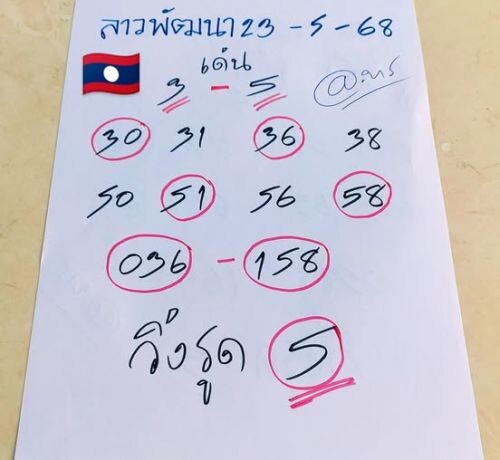 ลาวพัฒนา 23 - 5 - 68
เด่น
3 - 5
30 31 36 38
50 51 56 58
036 - 158
วิ่งรูด 5